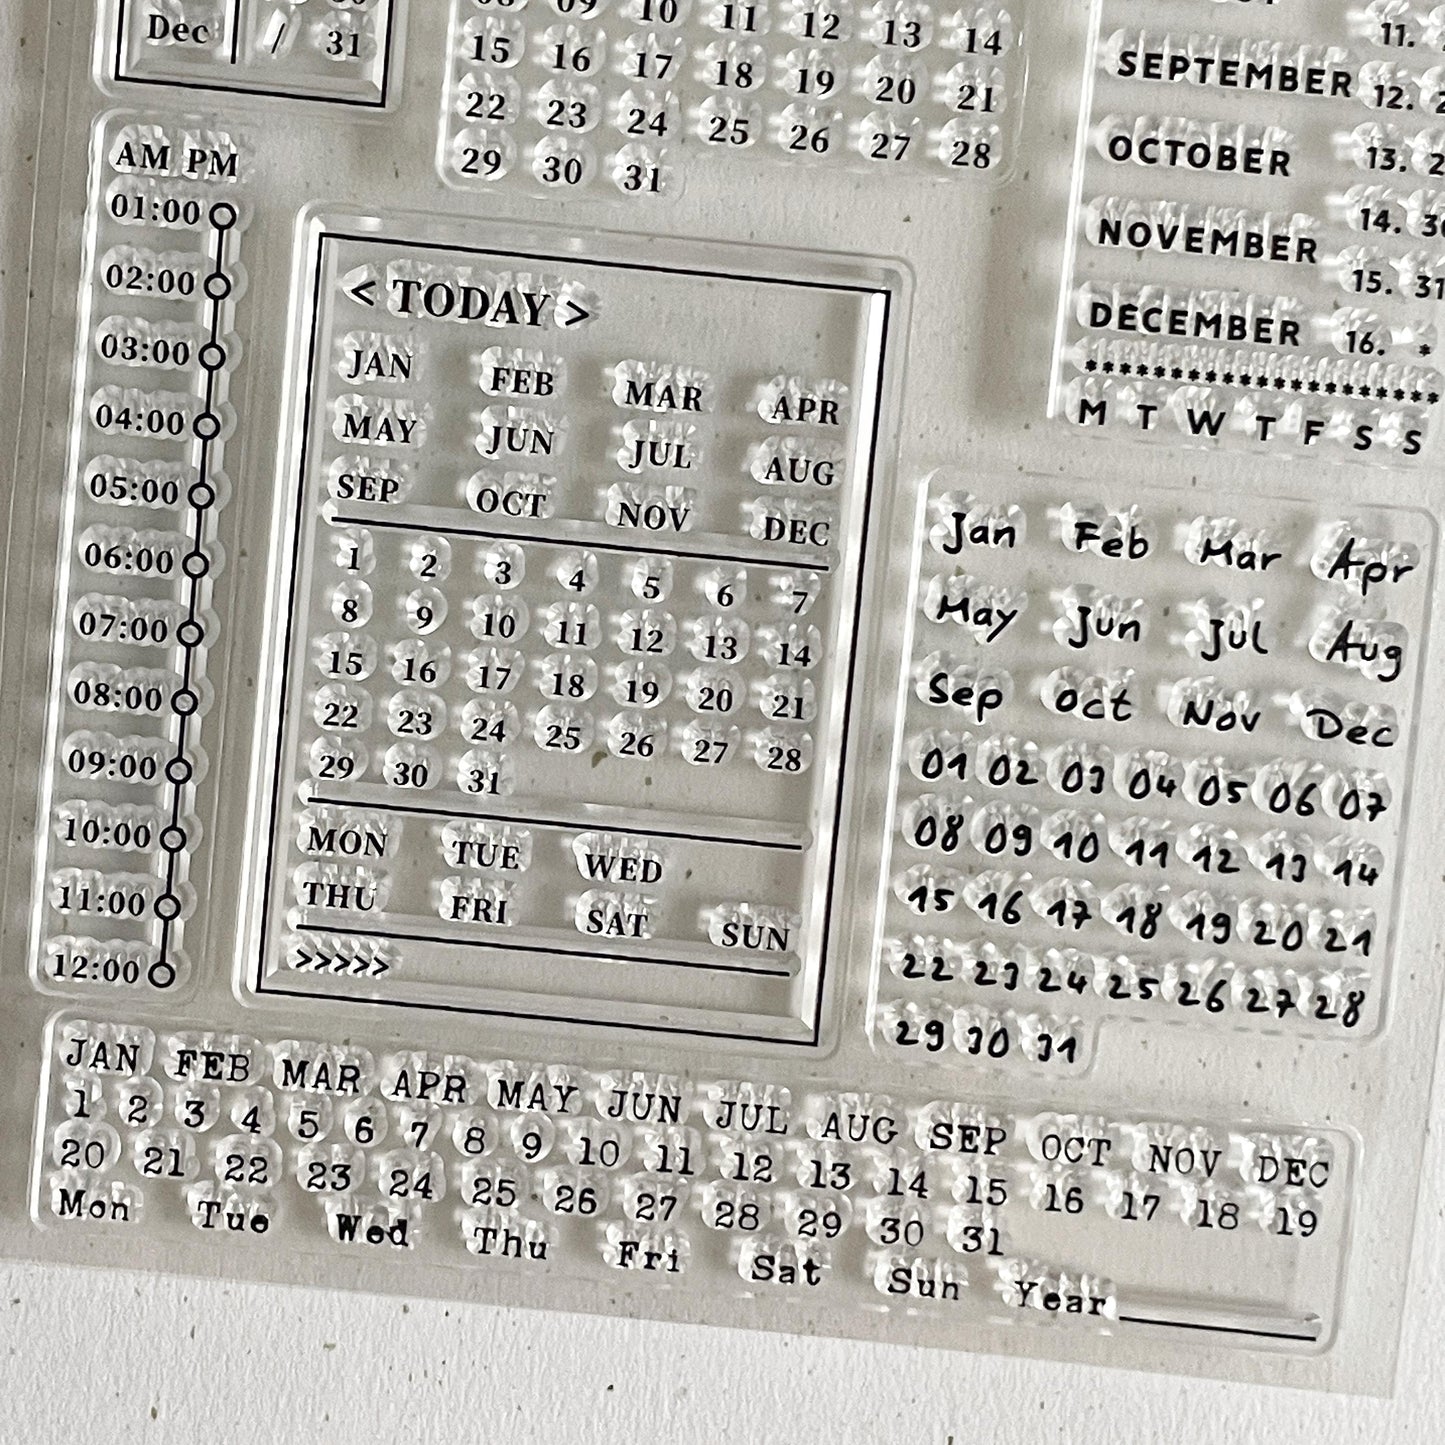 Dec / 31
10 11 12 13 14
15 16 17 18 19 20 21
22 23 24 25 26 27 28
29 30 31
11.
SEPTEMBER 12.
OCTOBER 13.
NOVEMBER 14.
15. 31
DECEMBER 16. *
*************************
M T W T F S S
AM PM
01:00
02:00
03:00
04:00
05:00
06:00
07:00
08:00
09:00
10:00
11:00
12:00
< TODAY >
JAN FEB MAR APR
MAY JUN JUL AUG
SEP OCT NOV DEC
1 2 3 4 5 6 7
8 9 10 11 12 13 14
15 16 17 18 19 20 21
22 23 24 25 26 27 28
29 30 31
MON TUE WED
THU FRI SAT SUN
>>>>>
Jan Feb Mar Apr
May Jun Jul Aug
Sep Oct Nov Dec
01 02 03 04 05 06 07
08 09 10 11 12 13 14
15 16 17 18 19 20 21
22 23 24 25 26 27 28
29 30 31
JAN FEB MAR APR MAY JUN JUL AUG SEP OCT NOV DEC
1 2 3 4 5 6 7 8 9 10 11 12 13 14 15 16 17 18 19
20 21 22 23 24 25 26 27 28 29 30 31
Mon Tue Wed Thu Fri Sat Sun Year